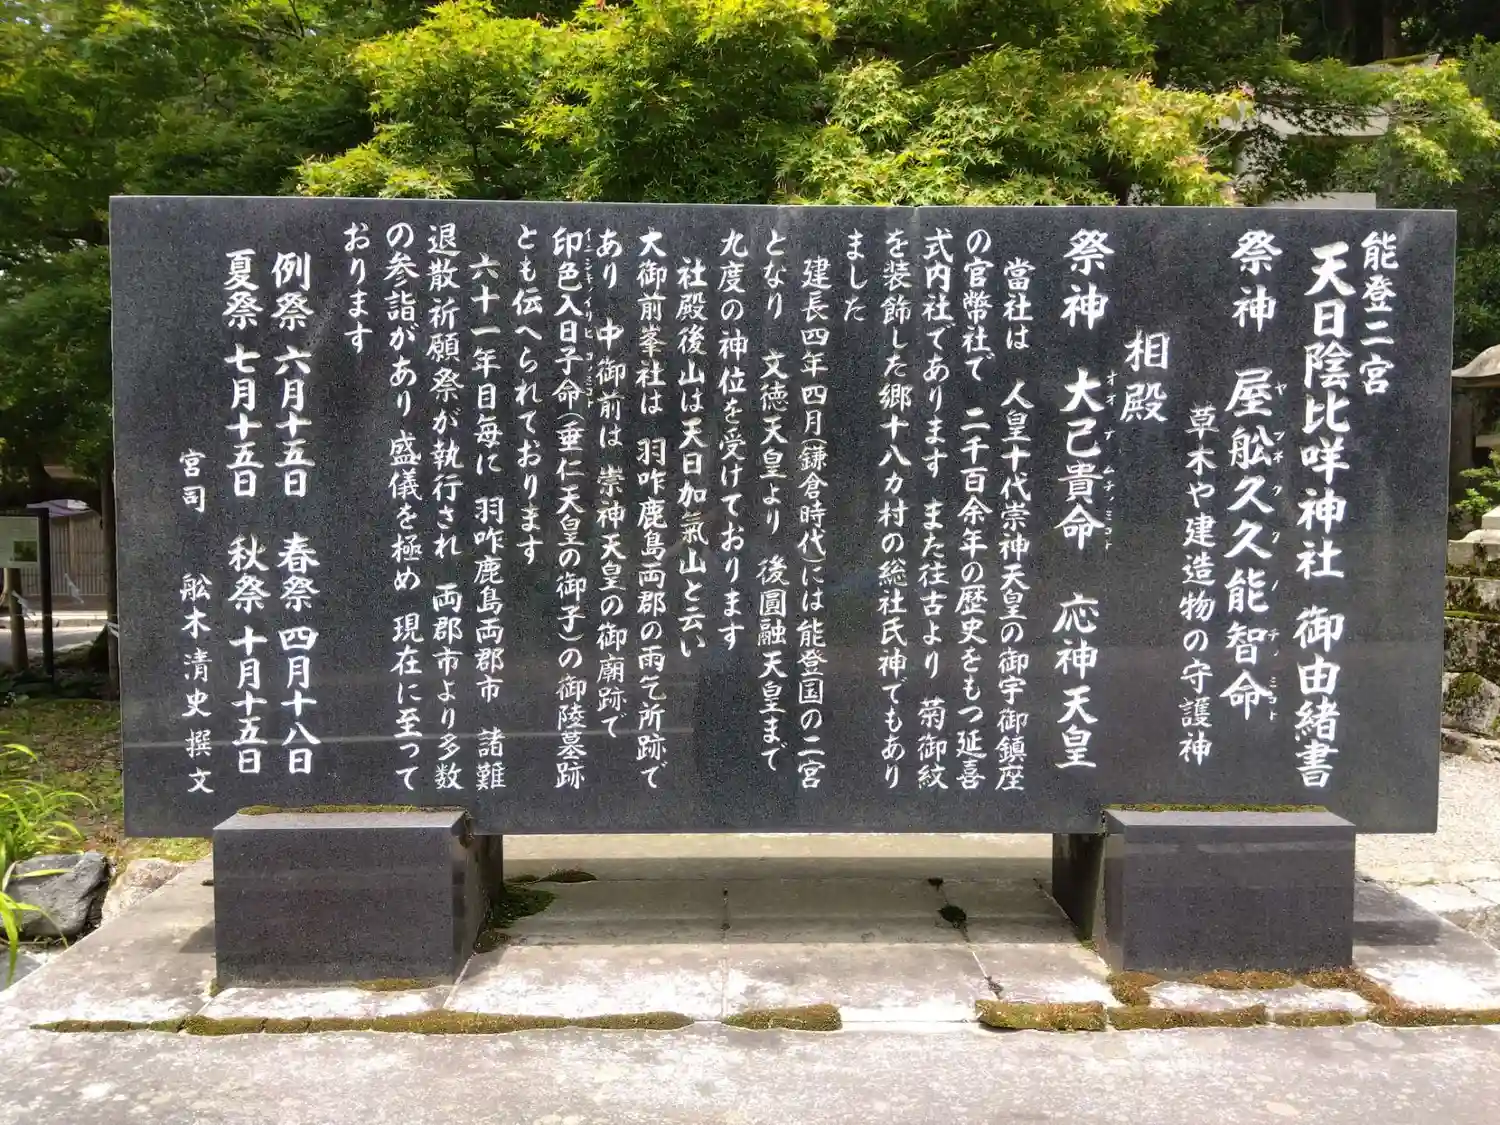 能登二宮
天日陰比咩神社 御由緒書
祭神 屋船久久能智命
ヤフネククノチノミコト
草木や建造物の守護神
相殿
祭神 大己貴命 応神天皇
オオアナムチノミコト
當社は 人皇十代崇神天皇の御宇御鎮座
の官幣社で 二千百余年の歴史をもつ延喜
式内社であります また往古より 菊御紋
を装飾した郷十八カ村の総社氏神でもあり
ました
建長四年四月(鎌倉時代)には能登国の二宮
となり 文徳天皇より 後圓融天皇まで
九度の神位を受けております
社殿後山は天日加氣山と云い
大御前峯社は 羽咋鹿島両郡の雨乞所跡で
あり 中御前は 崇神天皇の御廟跡で
印色入日子命(垂仁天皇の御子)の御陵墓跡
イニシキノイリヒコノミコト
とも伝へられております
六十一年目毎に 羽咋鹿島両郡市 諸難
退散祈願祭が執行され 両郡市より多数
の参詣があり 盛儀を極め 現在に至って
おります
例祭 六月十五日 春祭 四月十八日
夏祭 七月十五日 秋祭 十月十五日
宮司 舩木清史 撰文